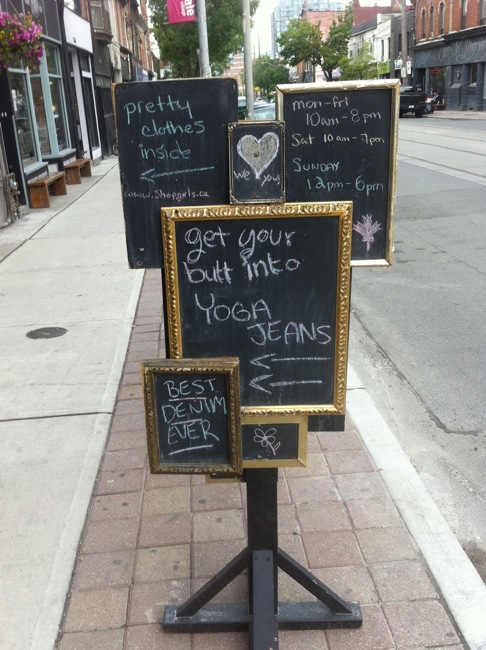 pretty
clothes
inside
www.shopgirls.ca
we you!
mon-fri
10am-8pm
Sat 10am-7pm
SUNDAY
12pm-6pm
get your
butt into
YOGA
JEANS
BEST
DENIM
EVER